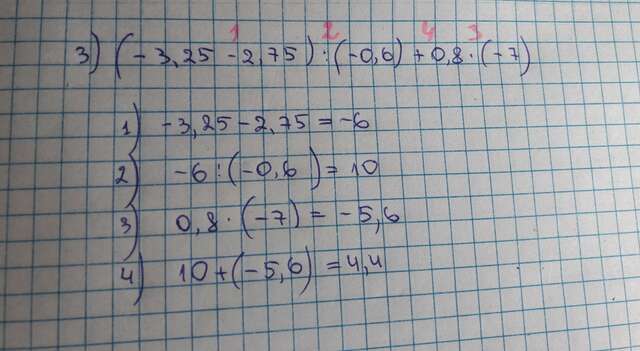 1 2 4 3
3) (-3,25 -2,75) : (-0,6) + 0,8 · (-7)
1) -3,25 -2,75 = -6
2) -6 : (-0,6) = 10
3) 0,8 · (-7) = -5,6
4) 10 + (-5,6) = 4,4